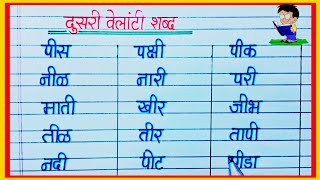 दुसरी वेलांटी शब्द
पीस पक्षी पीक
नीळ नारी परी
माती खीर जीभ
तीळ तीर तापी
नदी पीट पीडा